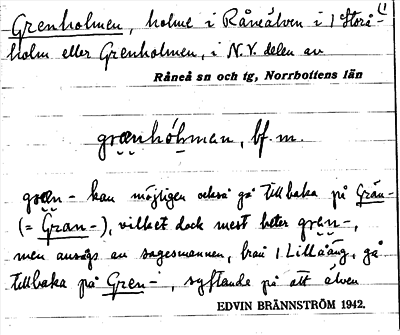 Grenholmen, holme i Råneälven i 1 Storå-
holm eller Grenholmen, i N.V. delen av
Råneå sn och tg, Norrbottens län
grænhólman, bf. m.
græn- kan möjligen också gå tillbaka på Grän-
(= Gran-), vilket dock mest heter græn-,
men ansågs av sagesmannen, från 1 Lillåäng, gå
tillbaka på Gren-, syftande på att älven
EDVIN BRÄNNSTRÖM 1942.